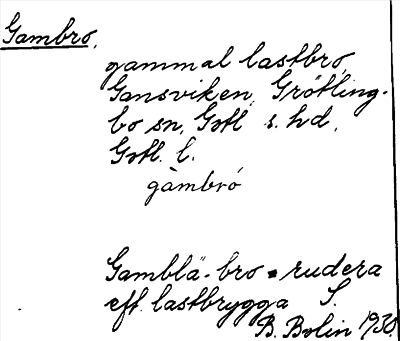 Gambro,
gammal lastbro,
Gansviken, Grötling-
bo sn, Gotl s. hd,
Gotl. l.
gàmbró
Gamblä-bro • rudera
eft. lastbrygga S.
B. Bolin 1930.